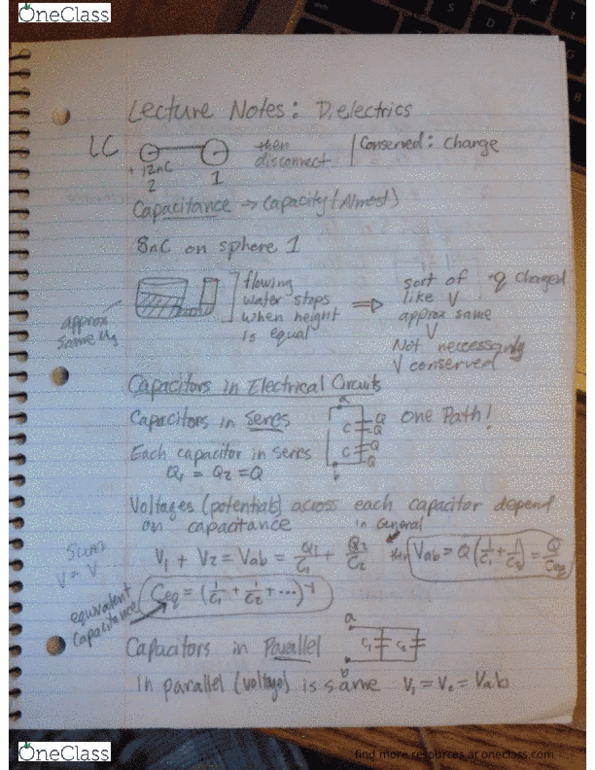 OneClass
Lecture Notes: Dielectrics
LC
then disconnect
Conserved: Charge
+ 12nC
2
1
Capacitance → Capacity (Almost)
8nC on sphere 1
flowing
water stops
when height
is equal
⇒
sort of
like V
approx same
V
Not neccessarily
V conserved
q charged
approx
same
Capacitors in Electrical Circuits
Capacitors in Series
a
C
Q
Q
C
Q
Q
b
one Path!
Each capacitor in series
Q1 = Q2 = Q
Voltages (potentials) across each capacitor depend
on capacitance
in General
V = V
V1 + V2 = Vab = Q1/C1 + Q2/C2
then Vab = Q(1/C1 + 1/C2) = Q/Ceq
equivalent
capacitance
Ceq = (1/C1 + 1/C2 + ...)^-1
Capacitors in Parallel
a
C1
C2
b
In parallel (voltage) is same V1 = V2 = Vab
OneClass
find more resources at oneclass.com